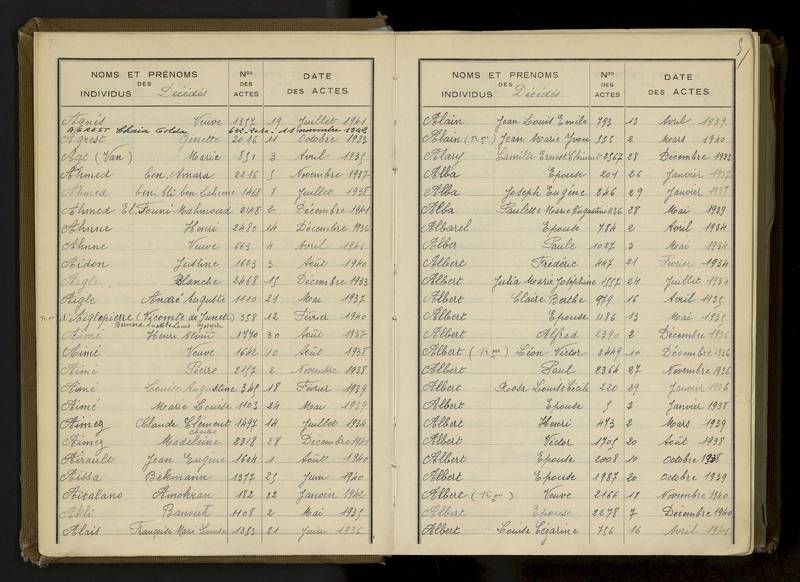 NOMS ET PRÉNOMS DES INDIVIDUS Décédés Nos DES ACTES DATE DES ACTES
Agnés Veuve 1357 19 Juillet 1941
AGREST Chaia Golda 11 1942
Agrest Ginette 2016 11 Octobre 1933
Agé (Van) Marie 851 3 Avril 1935
Ahmed ben Amara 2216 5 Novembre 1937
Ahmed ben Ali ben 1468 8 Juillet 1938
Ahmed El Touni Mahmoud 2148 2 Décembre 1941
Ahnne Henri 2480 14 Décembre 1936
Ahnne Veuve 663 4 Avril 1941
Aidon Justine 1603 3 Août 1940
Aigle Blanche 2468 15 Décembre 1933
Aigle André Auguste 1110 21 Mai 1937
d'Aiglepierre (Vicomte de 358 12 Février 1940
Aimé Henri 1770 30 Août 1937
Aimé Veuve 1642 10 Août 1938
Aimé Pierre 2157 2 Novembre 1938
Aimé Louise Augustine 349 18 Février 1939
Aimé Marie Louise 1103 24 Mai 1939
Aimez Claude Clément 1497 14 Juillet 1934
Charles
Aimez Madeleine 2318 28 Décembre 1941
Airault Jean Eugène 1604 1 Août 1940
Aissa Bekmann 1377 25 Juin 1940
Aitalano Amokran 182 22 Janvier 1942
Akli Banout 1108 2 Mai 1935
Alais Françoise Marie Louise 1383 21 Juin 1936
NOMS ET PRÉNOMS DES INDIVIDUS Décédés Nos DES ACTES DATE DES ACTES
Alain Jean Louis Emile 793 13 Avril 1939
Alain Jean Marie Yvon 555 2 Mars 1940
Alary Camille Ernest 2567 28 Décembre 1933
Alba Epouse 201 26 Janvier 1937
Alba Joseph Eugène 246 29 Janvier 1938
Alba Paulette Marie Augustine 1136 28 Mai 1939
Albarel Epouse 784 2 Avril 1934
Alber Paule 1027 3 Mai 1934
Albert Frédéric 447 21 Février 1934
Albert Julia Marie Joséphine 1557 24 Juillet 1934
Albert Claire Berthe 979 16 Avril 1935
Albert Epouse 1186 13 Mai 1935
Albert Alfred 2390 2 Décembre 1936
Albert Léon Victor 2449 10 Décembre 1936
Albert Paul 2364 27 Novembre 1936
Albert Rosa Louise Cécile 220 29 Janvier 1936
Albert Epouse 5 2 Janvier 1938
Albert Henri 473 2 Mars 1939
Albert Victor 1705 20 Août 1938
Albert Epouse 2008 10 Octobre 1938
Albert Epouse 1987 20 Octobre 1939
Albert Veuve 2166 18 Novembre 1940
Albert Epouse 2278 7 Décembre 1940
Albert Louise Cézarine 756 16 Avril 1941